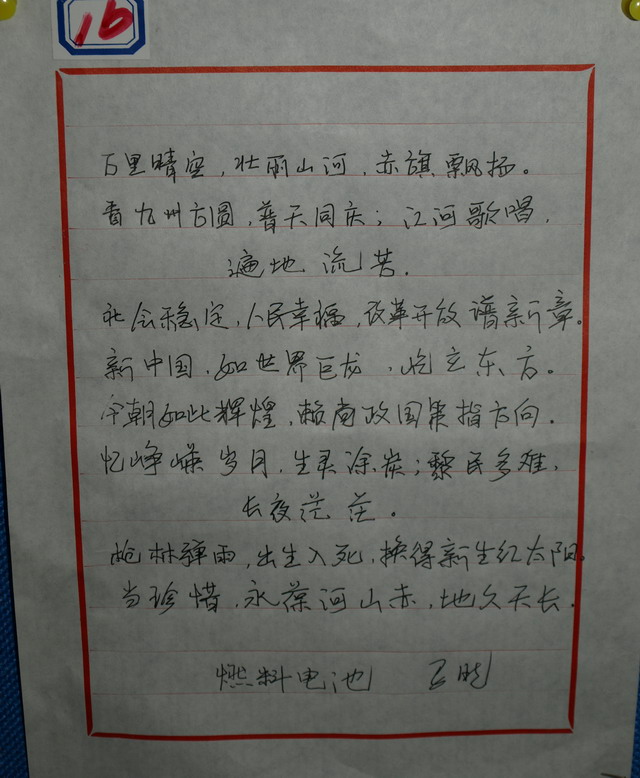 16
万里晴空，壮丽山河，赤旗飘扬。
看九州方圆，普天同庆；江河歌唱，
遍地流芳。
社会稳定，人民幸福，改革开放谱新章。
新中国，如世界巨龙，屹立东方。
今朝如此辉煌，赖有政国策指方向。
忆峥嵘岁月，生灵涂炭；黎民多难，
长夜茫茫。
枪林弹雨，出生入死，换得新生红太阳。
当珍惜，永葆河山赤，地久天长。
燃料电池 王